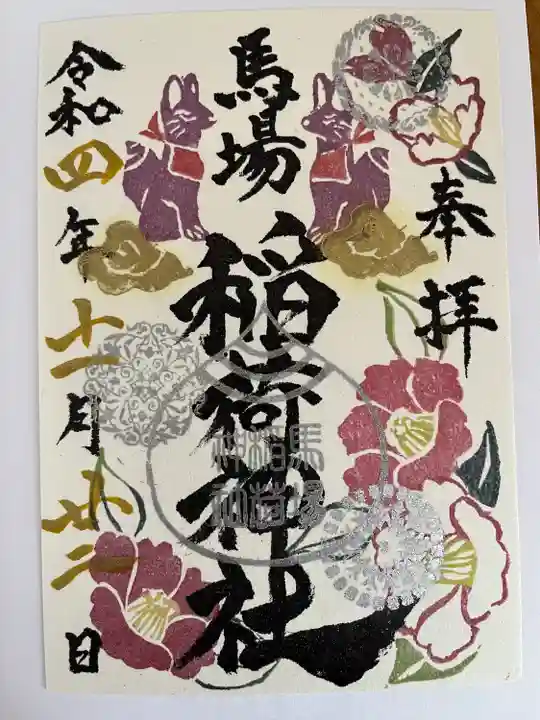 奉拝
馬場稲荷神社
馬場
稲荷
神社
令和四年十一月廿二日